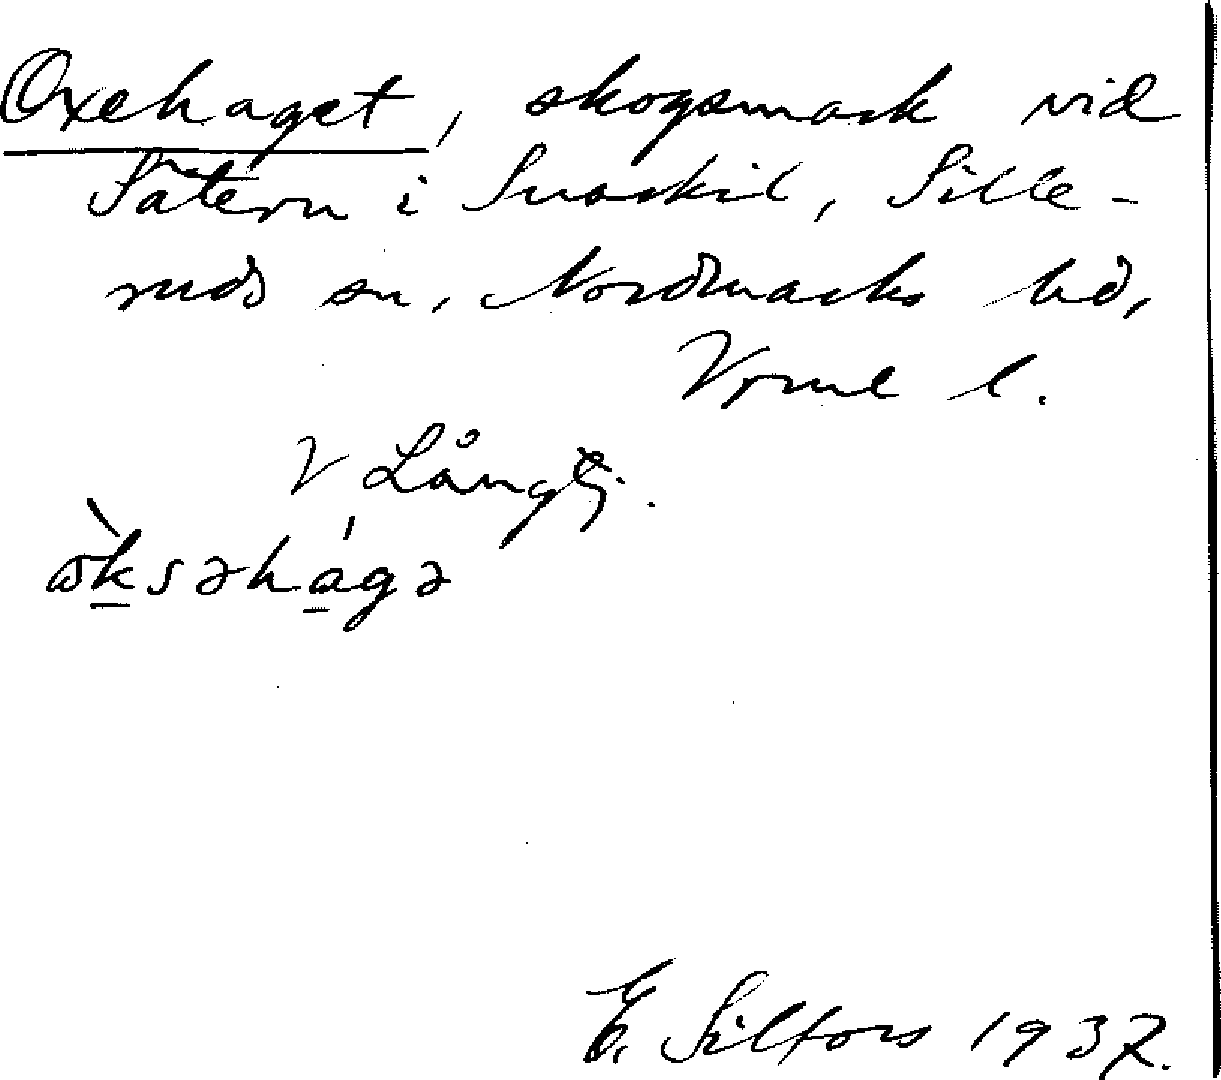 Oxehaget, skogsmark vid
Sätern i Snarkil, Sille-
ruds sn, Nordmarks hd,
Vrml l.
V Långtj.
ɷ̀ksəhágə
E. Silfors 1937.